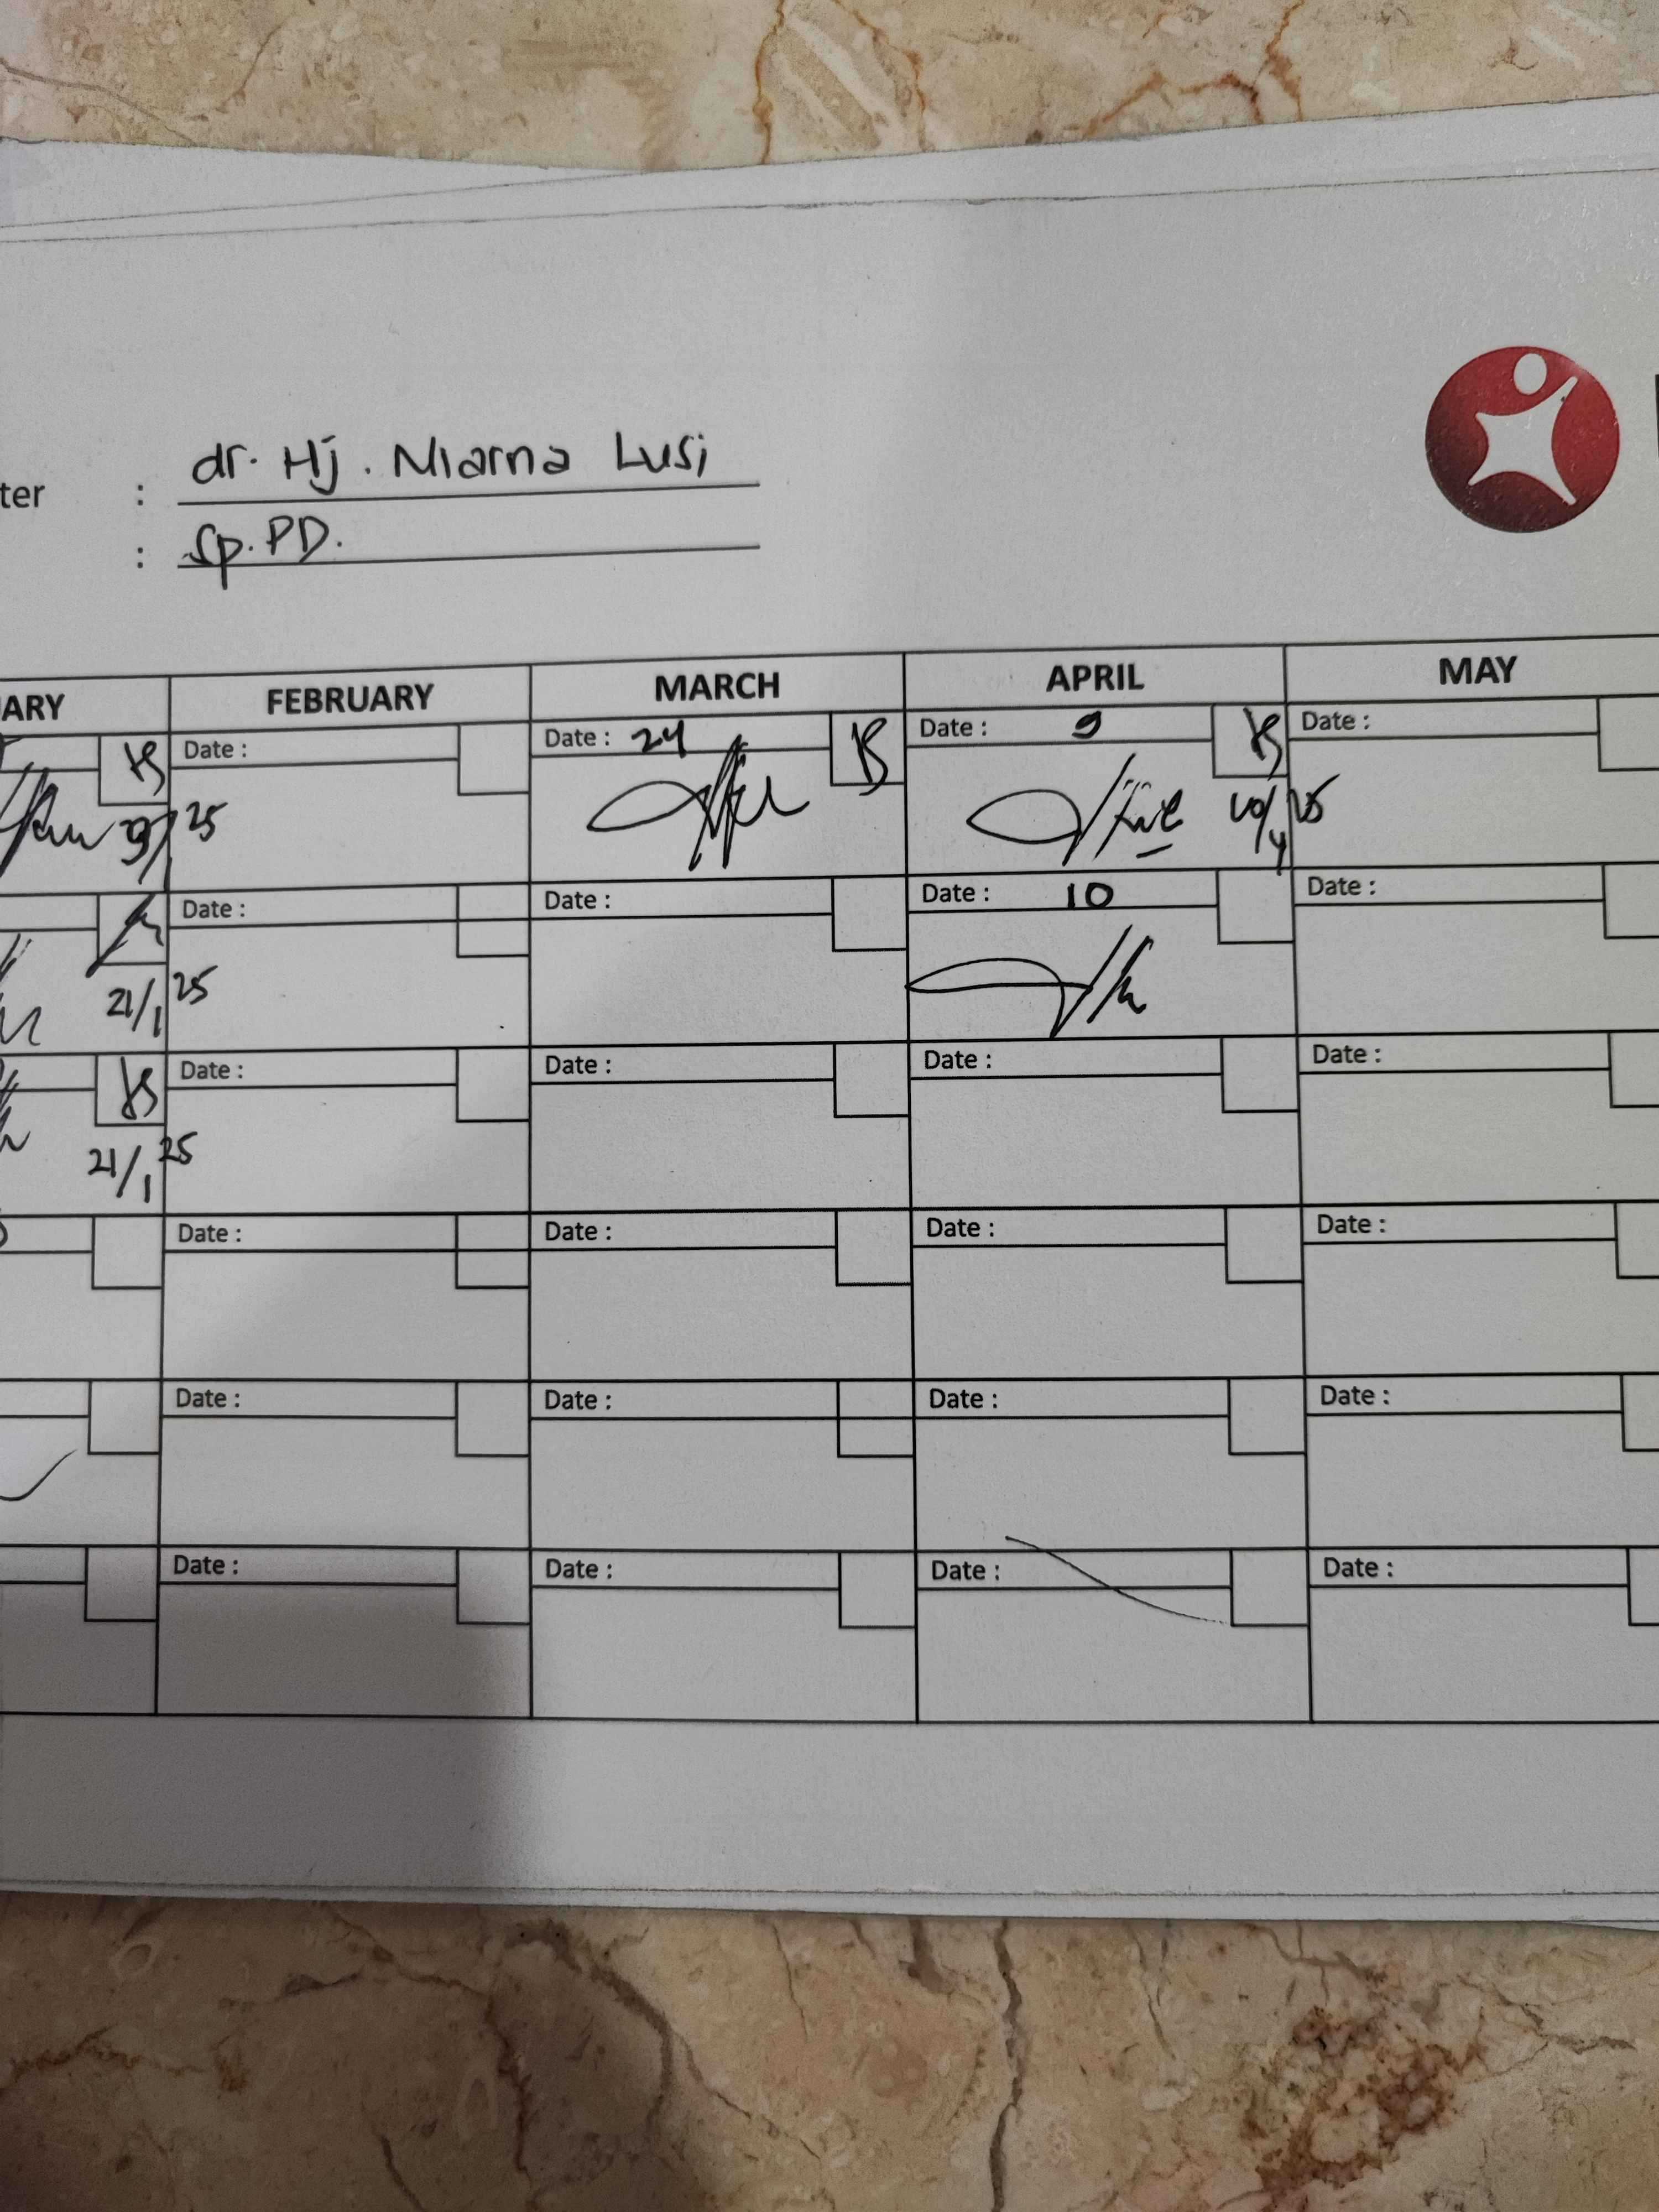 ter : dr. Hj. Niarna Lusi
: Sp.PD.
UARY FEBRUARY MARCH APRIL MAY
Date : Date : 24 Date : 9 Date :
25
Date : Date : Date : 10 Date :
21/1 25
Date : Date : Date : Date :
21/1 25
Date : Date : Date : Date :
Date : Date : Date : Date :
Date : Date : Date : Date :